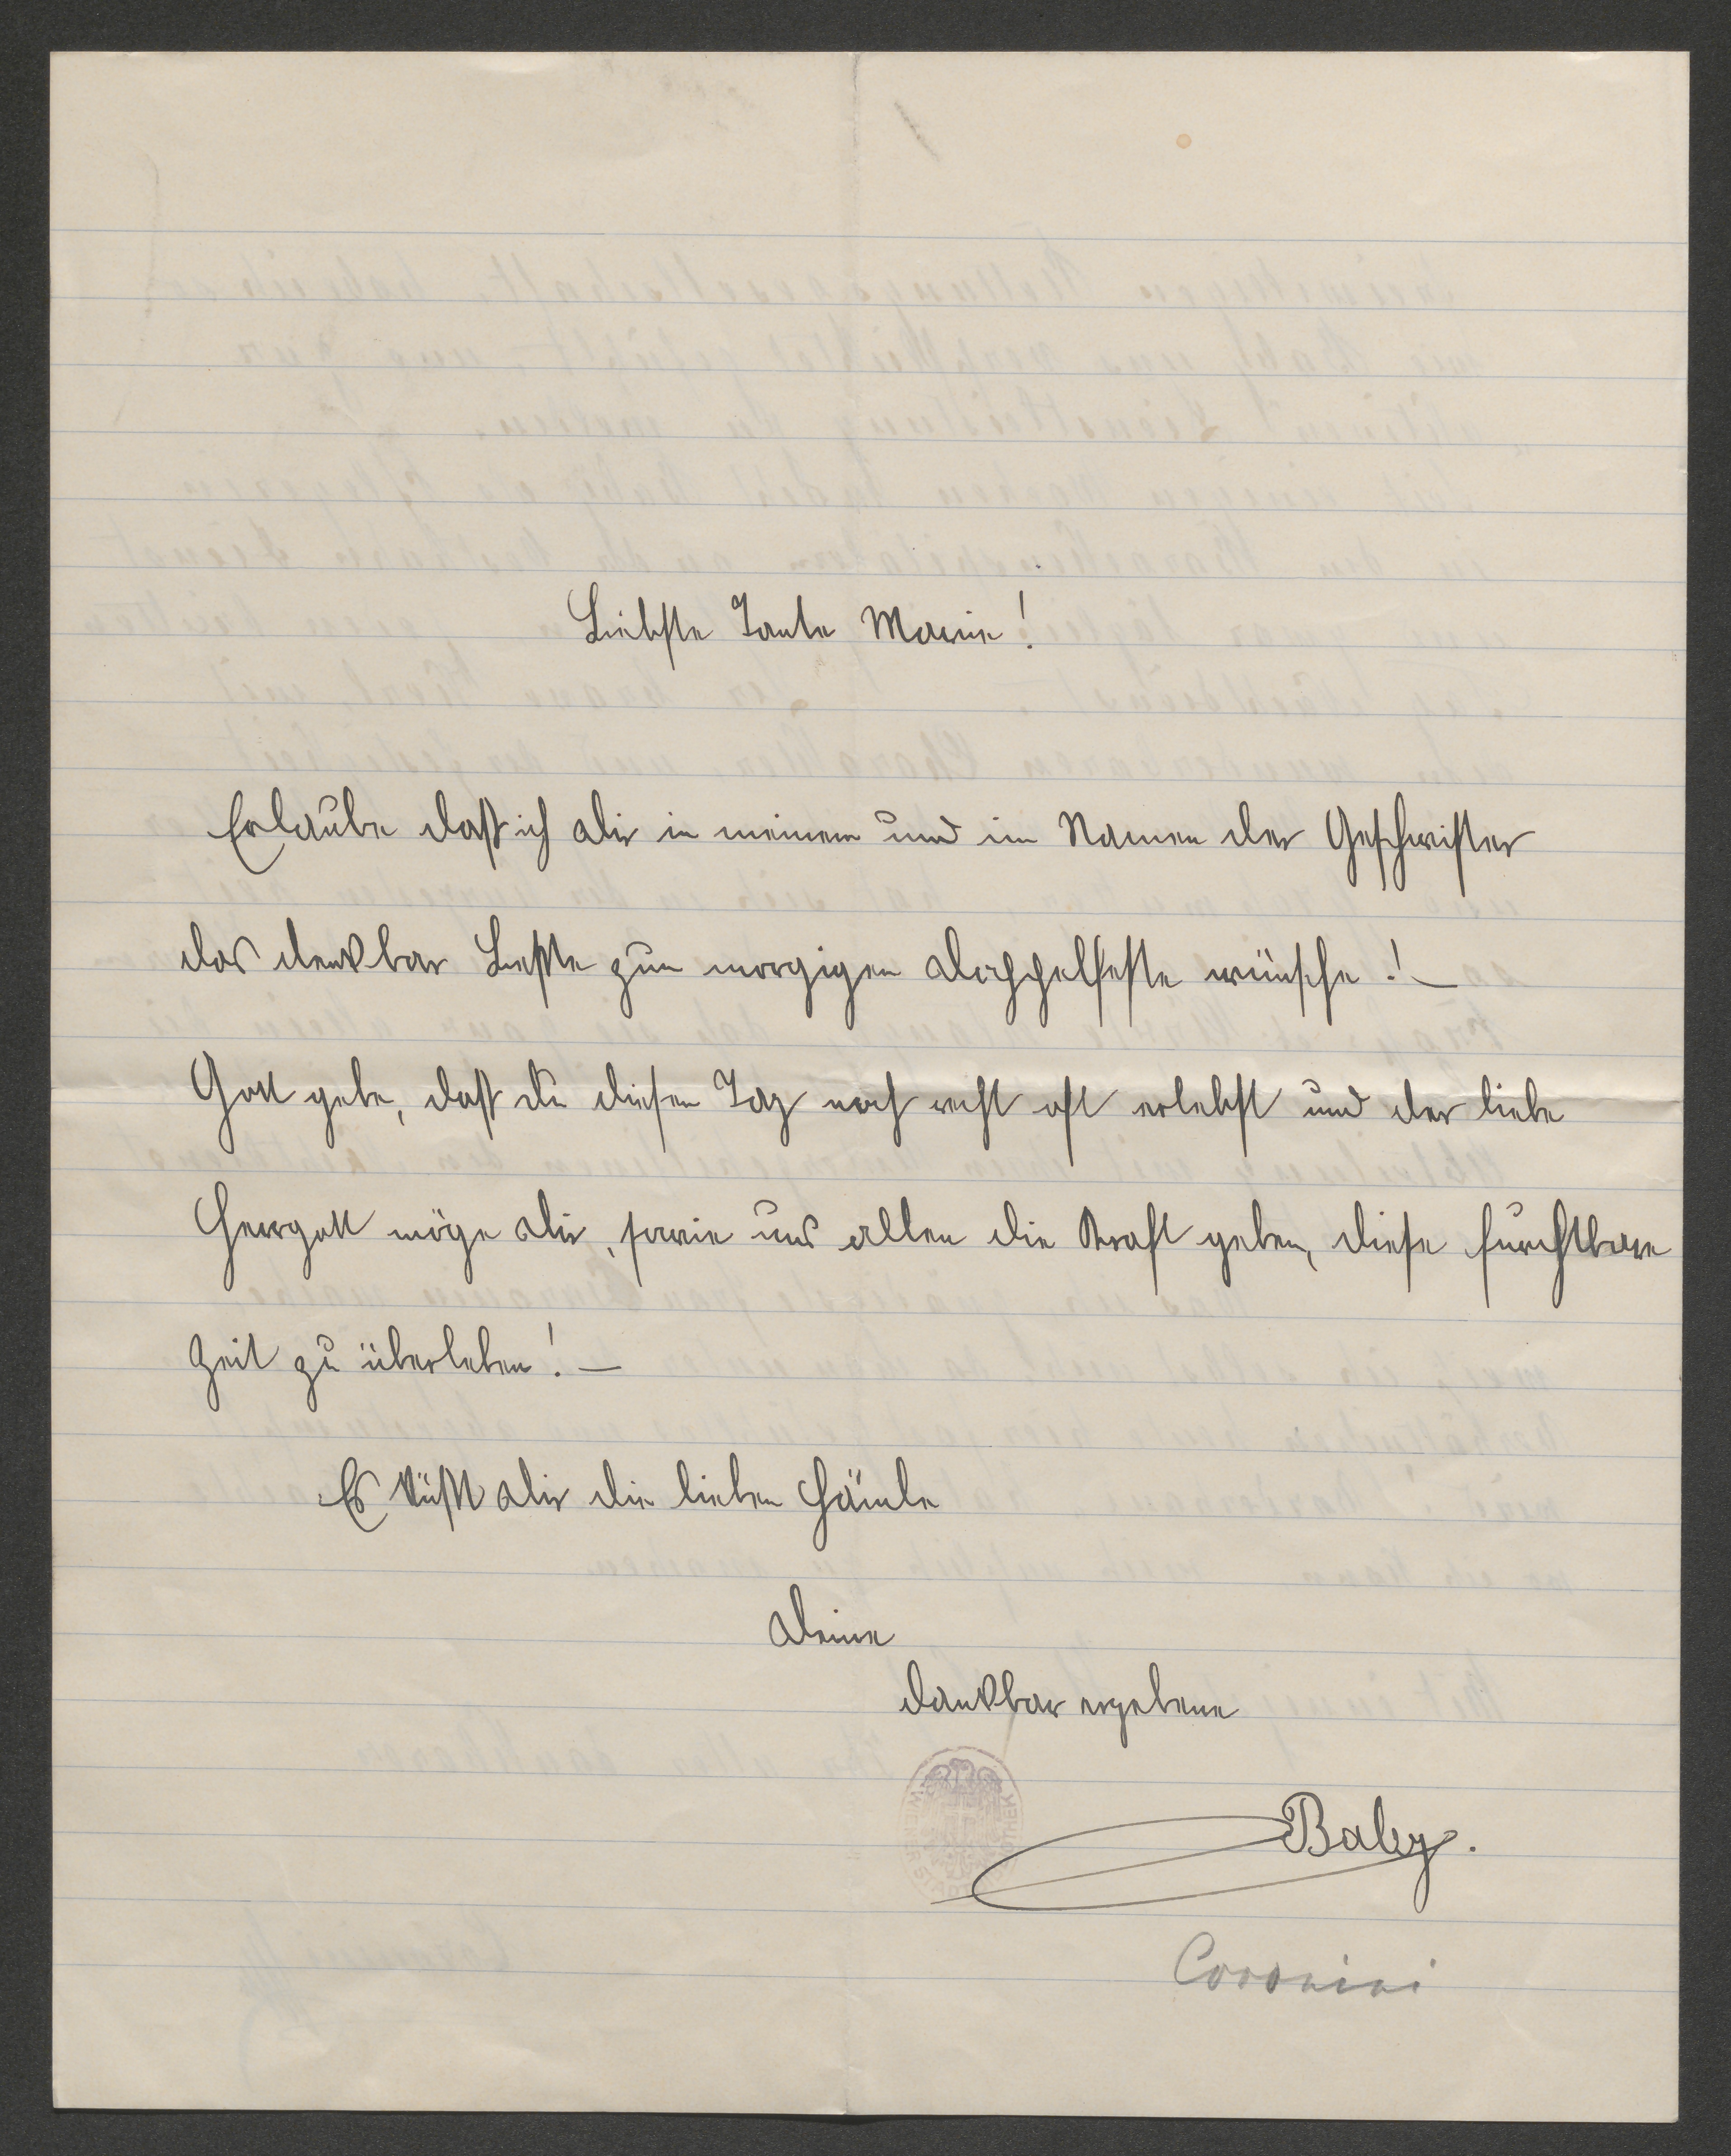 Liebste Tante Marie!
Erlaube daß ich Dir in meinem und im Namen der Geschwister
das denkbar Beste zum morgigen Doppelfeste wünsche! –
Gott gebe, daß du diesen Tag noch recht oft erlebst und der liebe
Herrgott möge Dir, sowie uns allen die Kraft geben, diese furchtbare
Zeit zu überleben! –
Es küßt Dir die lieben Hände
Deine
dankbar ergebene
Baby.
Coronini